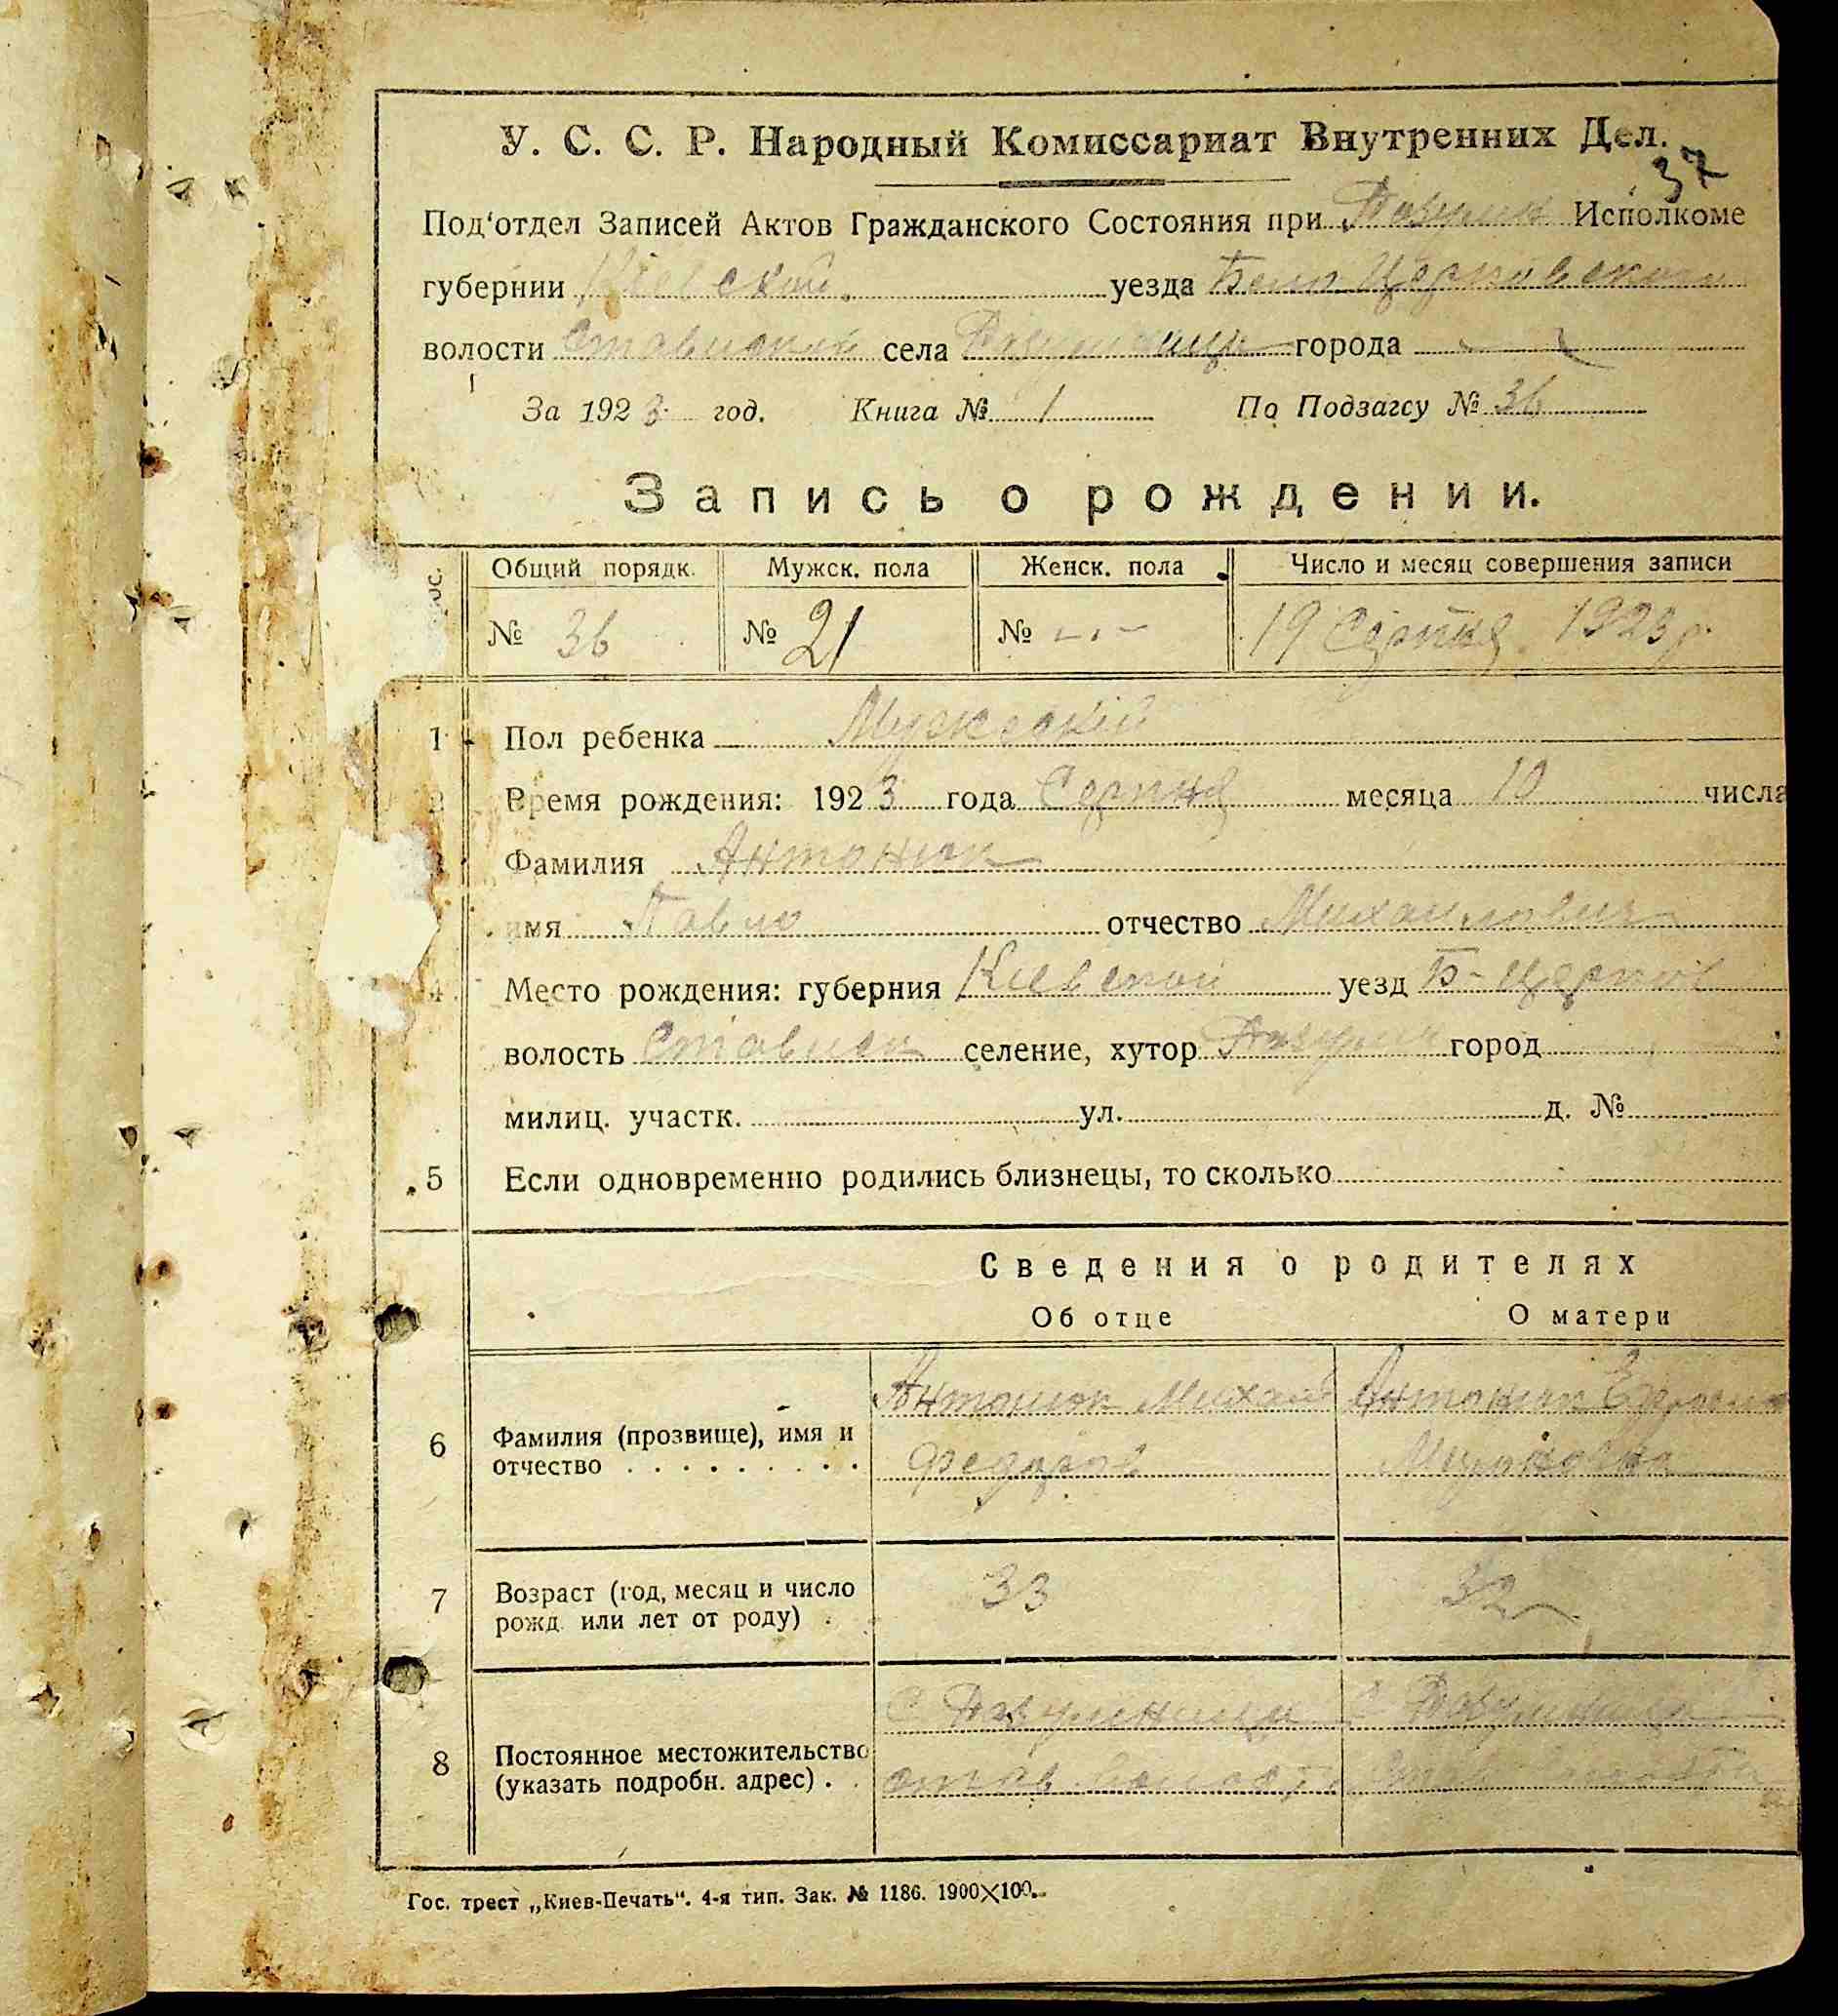 37
У. С. С. Р. Народный Комиссариат Внутренних Дел.
Под'отдел Записей Актов Гражданского Состояния при Исполкоме
губернии Кіевской уезда Бело Церковского
волости села города
За 1923 год. Книга № 1 По Подзагсу № 36
Запись о рождении.
Общий порядк. Мужск. пола Женск. пола Число и месяц совершения записи
№ 36 № 21 № - . - 19 Серпня 1923 р.
1 Пол ребенка Мужский
Время рождения: 1923 года Серпня месяца 10 числа
Фамилия Антонюк
имя Павло отчество Михайлович
4 Место рождения: губерния Киевской уезд Б-Церков
волость селение, хутор город
милиц. участк. ул. д. №
5 Если одновременно родились близнецы, то сколько
Сведения о родителях
Об отце О матери
Антонюк Михаил Антонюк
6 Фамилия (прозвище), имя и отчество Федоров
7 Возраст (год, месяц и число рожд. или лет от роду) 33 32
8 Постоянное местожительство (указать подробн. адрес)
Гос. трест „Киев-Печать“. 4-я тип. Зак. № 1186. 1900×100.